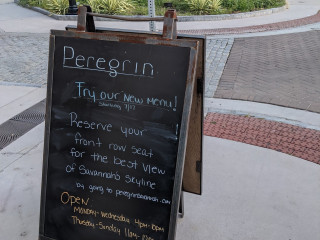 Peregrin
Try our New Menu!
Reserve your
front row seat
for the best view
of Savannah's skyline
by going to peregrinsavannah.com
OPEN
Monday-Wednesday 4pm-10pm
Thursday-Sunday 11am-